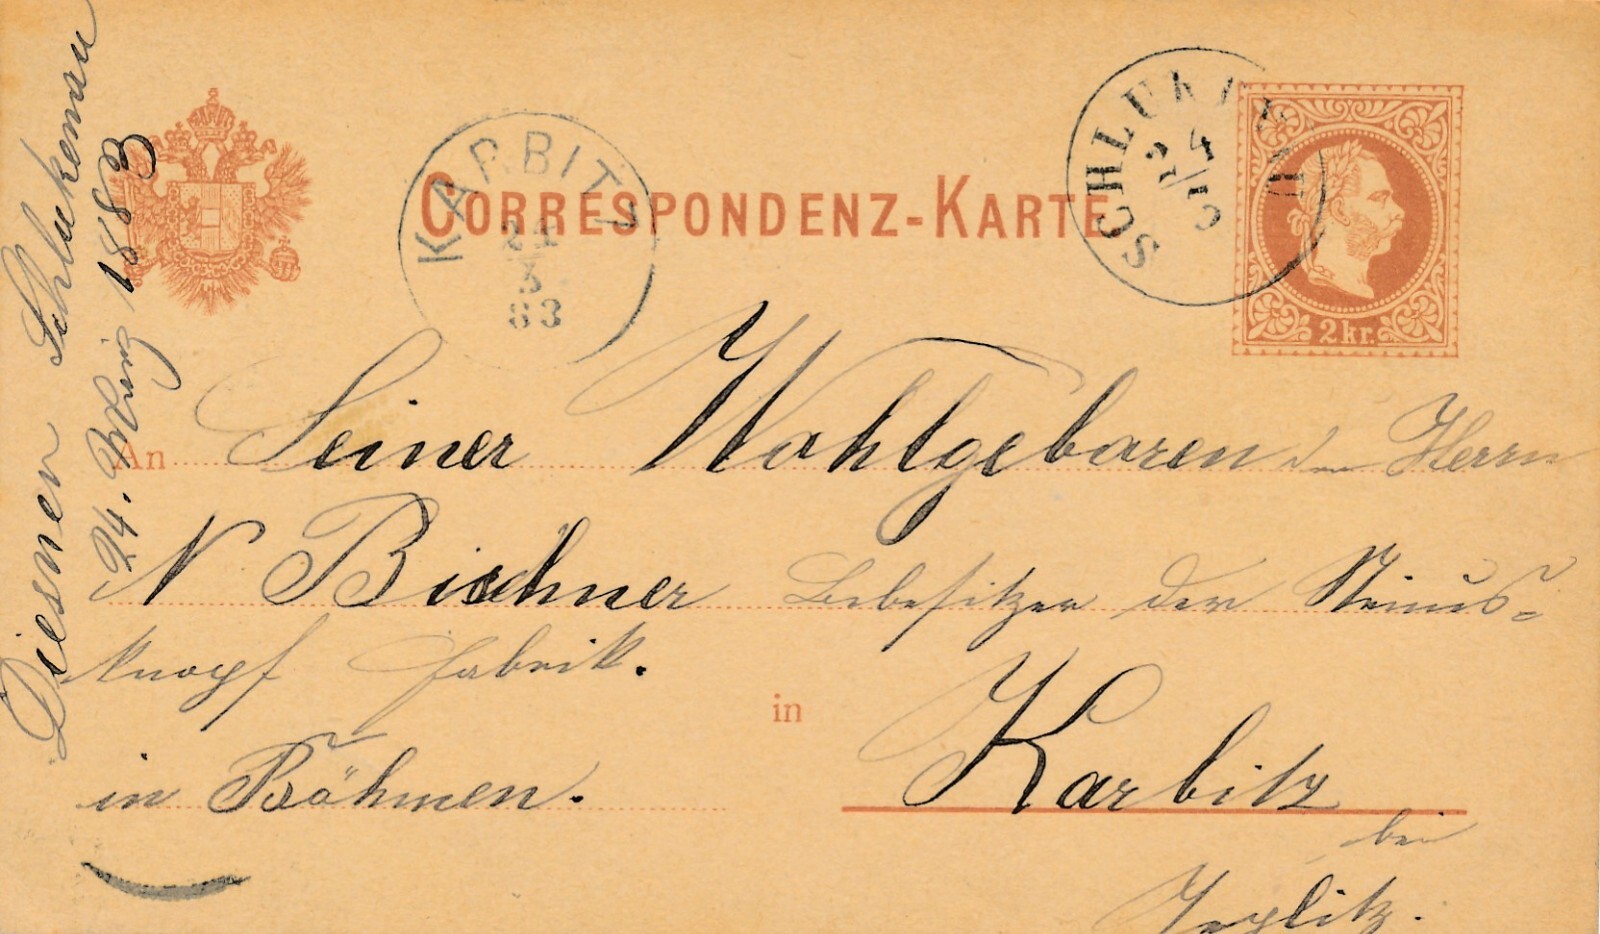 Diesner Schlukenau
24. März 1883
CORRESPONDENZ-KARTE
KARBITZ
24
3
83
SCHLUKENAU
24
3
2 kr.
An Seiner Wohlgeboren den Herrn
N Bischner Besitzer der Steinnuß-
knopf Fabrik.
in Karbitz
in Böhmen.
bei